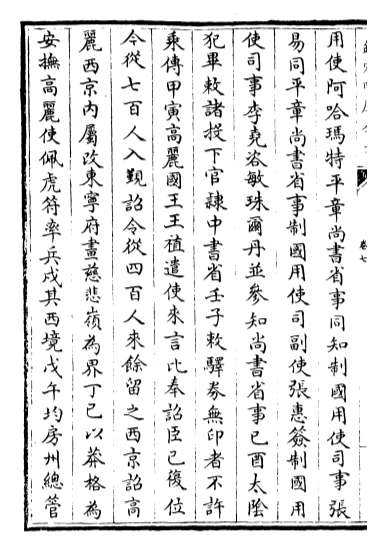 用使阿哈瑪特平章尚書省事同知制國用使司事張
易同平章尚書省事制國用使司副使張惠簽制國用
使司事李堯咨敏珠爾丹並參知尚書省事已酉太陰
犯畢敕諸投下官隸中書省壬子敕驛券無印者不許
乘傳甲寅高麗國王王植遣使來言比奉詔臣已復位
令從七百人入覲詔令從四百人來餘留之西京詔高
麗西京內屬改東寧府畫慈悲嶺為界丁巳以莽格為
安撫高麗使佩虎符率兵戍其西境戊午均房州總管
卷七